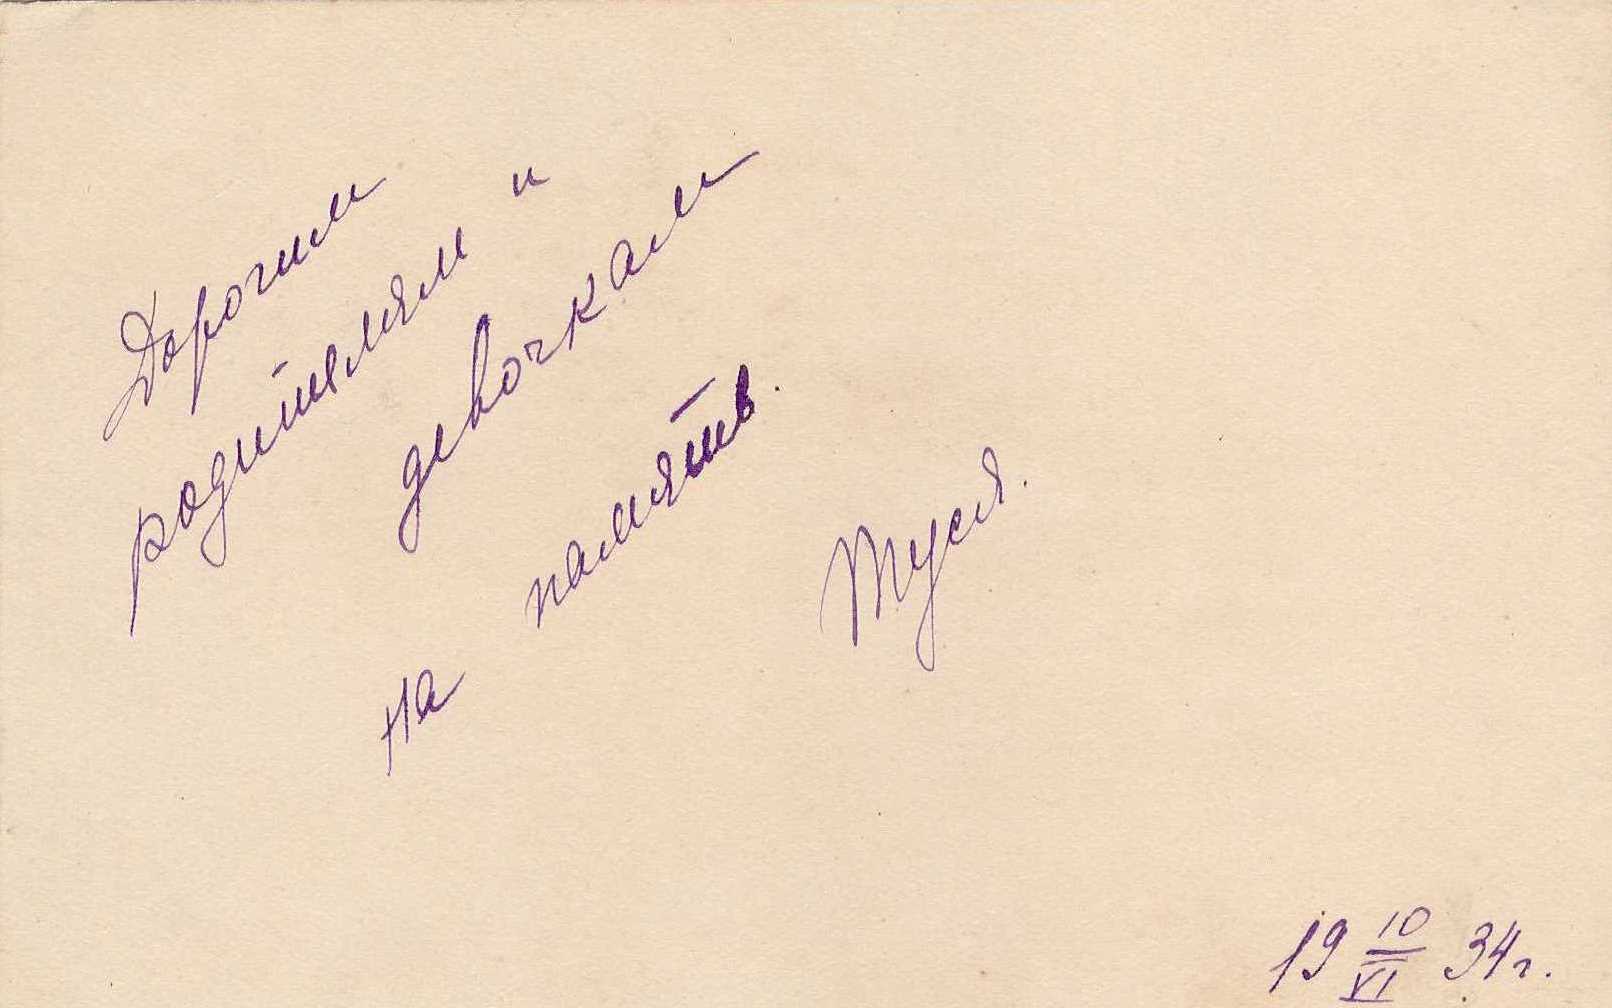 Дорогим
родителям и
девочкам
на память.
Туся.
19 10/VI 34г.